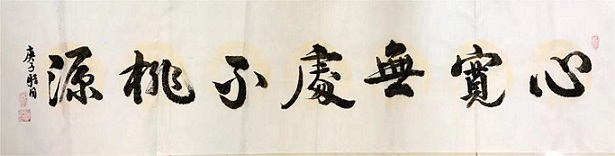 心寬無處不桃源
庚子